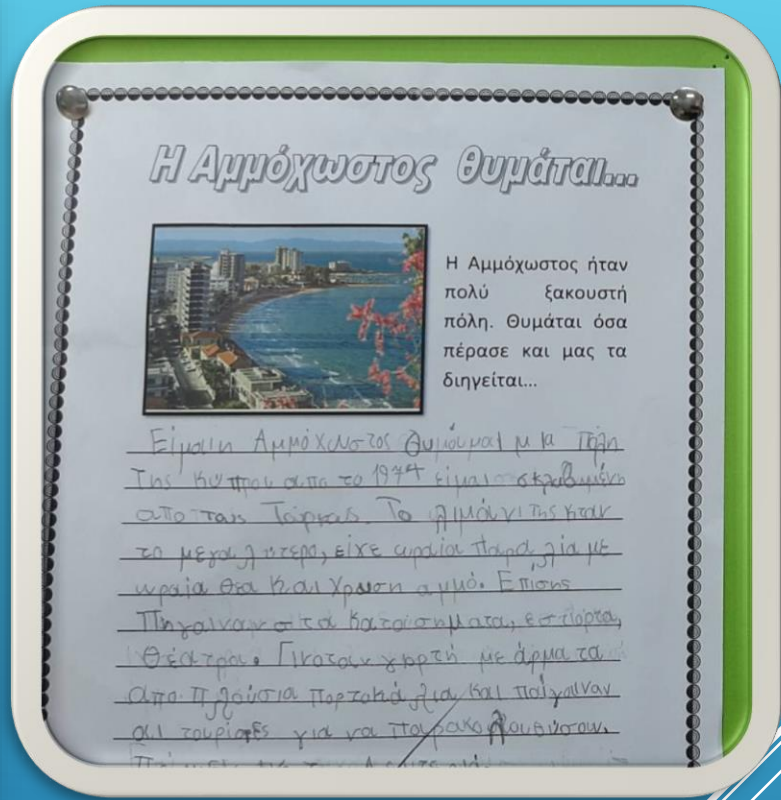 Η Αμμόχωστος θυμάται...
Η Αμμόχωστος ήταν
πολύ ξακουστή
πόλη. Θυμάται όσα
πέρασε και μας τα
διηγείται...
Είμαι η Αμμόχωστος Θυμούμαι μια πόλη
της Κύπρου απο το 1974 είμαι σκλαβωμένη
απο τους Τούρκους. Το λιμάνι της ήταν
το μεγαλήτερο, είχε ωραία παραλία με
ωραία θέα και χρυση αμμό. Επισης
Πηγαιναν στα Κατασηματα, εστιορτα,
Θέατρα. Γινοταν γιορτή με άρματα
απο πλούσια πορτοκάλια και παίγαιναν
οι τουρίστες για να παρακολουθισουν.